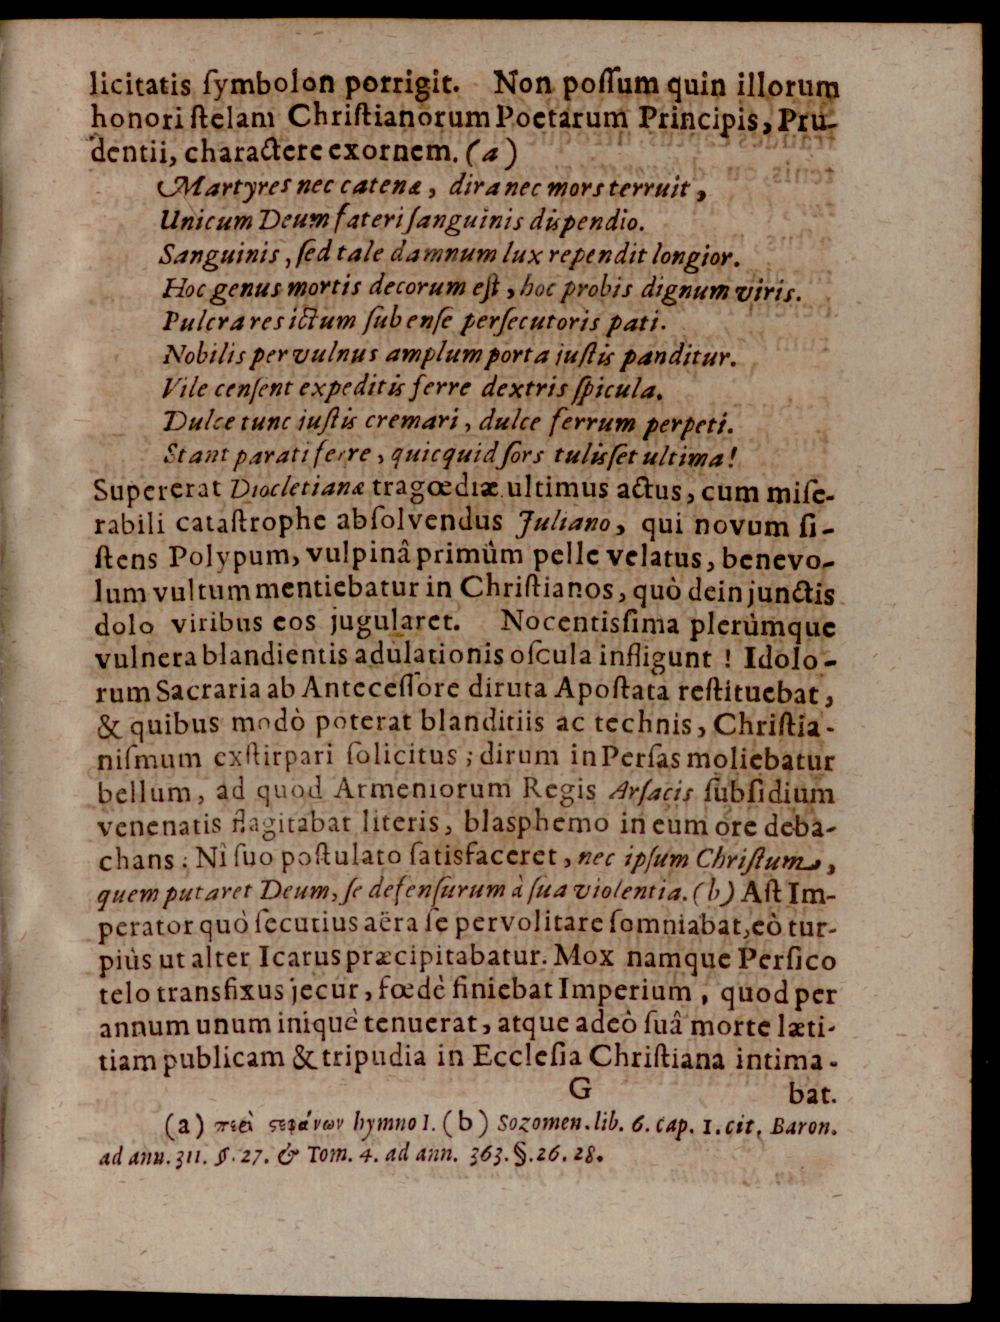 licitatis ſymbolon porrigit. Non poſſum quin illorum
honori ſtelam Chriſtianorum Poetarum Principis, Pru-
dentii, charactere exornem. (a)
Martyres nec catenæ, dira nec mors terruit,
Unicum Deum fateri ſanguinis diſpendio.
Sanguinis, ſed tale damnum lux rependit longior.
Hoc genus mortis decorum eſt, hoc probis dignum viris.
Pulcra res ictum ſub enſe perſecutoris pati.
Nobilis per vulnus amplum porta iuſtis panditur.
Vile cenſent expeditis ferre dextris ſpicula.
Dulce tunc iuſtis cremari, dulce ferrum perpeti.
Stant parati ferre, quicquid ſors tuliſſet ultima!
Supererat Diocletianæ tragœdiæ ultimus actus, cum miſe-
rabili cataſtrophe abſolvendus Juliano, qui novum ſi-
ſtens Polypum, vulpinâ primùm pelle velatus, benevo-
lum vultum mentiebatur in Chriſtianos, quò dein junctis
dolo viribus eos jugularet. Nocentiſſima plerùmque
vulnera blandientis adulationis oſcula infligunt! Idolo-
rum Sacraria ab Anteceſſore diruta Apoſtata reſtituebat,
& quibus modò poterat blanditiis ac technis, Chriſtia-
niſmum exſtirpari ſolicitus; dirum in Perſas moliebatur
bellum, ad quod Armeniorum Regis Arſacis ſubſidium
venenatis flagitabat literis, blasphemo in eum ore deba-
chans: Ni ſuo poſtulato ſatisfaceret, nec ipſum Chriſtum,
quem putaret Deum, ſe defenſurum à ſua violentia. (b) Aſt Im-
perator quò ſecutius aëra ſe pervolitare ſomniabat, eò tur-
piùs ut alter Icarus præcipitabatur. Mox namque Perſico
telo transfixus jecur, fœdè finiebat Imperium, quod per
annum unum iniquè tenuerat, atque adeò ſuâ morte læti-
tiam publicam & tripudia in Eccleſia Chriſtiana intima-
G bat.
(a) πεϱὶ ϛεφάνων hymno I. (b) Sozomen. lib. 6. cap. 1. cit. Baron.
ad ann. 311. §. 27. & Tom. 4. ad ann. 363. §. 26. 28.